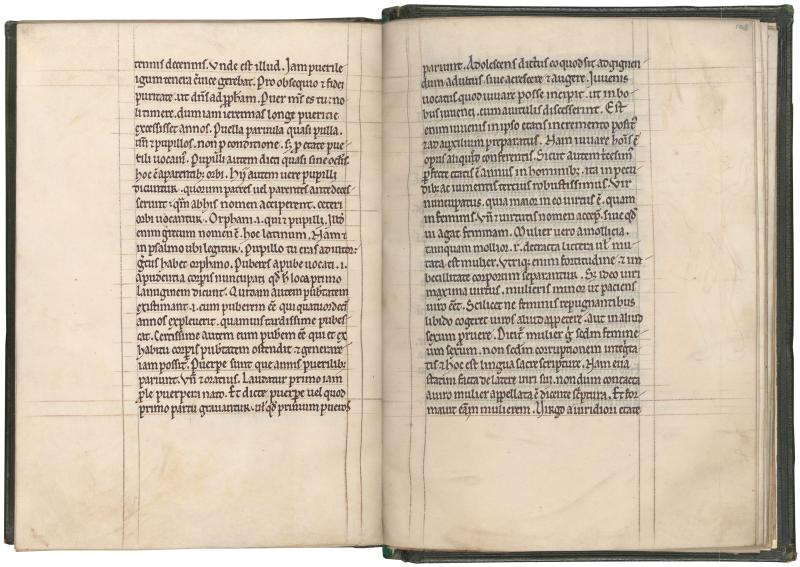 tennis decennis. Vnde est illud. Iam puerile
iugum tenera ceruice gerebat. Pro obsequio & fidei
puritate. ut dn̄s ad ꝓph̄am. Puer ms̄ es tu: no
li timere. dum iam ieremias longe puericie
excessisset annos. Puella paruula quasi pulla.
Vn̄ & pupillos. non ꝓ conditione. s; ꝓ etate pue
rili uocam᷒. Pupilli autem dicti quasi sine oculis.
hoc ē a parentib; orbi. Hij autem uere pupilli
dicuntur. quorum patres uel parentes ante deces
serunt & qm̄ ab his nomen acciperent. ceteri
orbi uocantur. Orphani .i. qui & pupilli. Illđ
enim grecum nomen ē. hoc latinum. Nam &
in psalmo ubi legitur. Pupillo tu eras adiutor:
grecus habet orphano. Puberes a pube uocati .i.
a pudentia corpis nuncupati qđ h̄ loca primo
lanuginem dicunt. Quidam autem pubertatem
existimant .i. eum puberem ēē. qui quatuordecī
annos expleuerit. quamuis tardissime pubes
cat. Certissime autem eum puberem ēē qui et ex
habitu corpis pubertatem ostendit & generare
iam possit. Puerpere sunt que annis puerilib;
pariunt. Vn̄ & oratius. Laudatur primo iam
ꝓle puerpera nato. Et dicte puerpere uel quod
primo partu grauantur. ul̄ qđ primum pueros
pariunt. Adolescens dictus eo quod sit ad gignen
dum adultus. siue a crescere & augere. Iuuenis
uocatus quod iuuare posse incipit. ut in bo
bus iuuenci. cum a uitulis discesserint. Est
enim iuuenis in ipso etatis incremento posit᷒
& ad auxilium preparatus. Nam iuuare hoīs ē
opus aliquod conferentis. Sicut autem tricesim᷒
perfecte etatis ē annus in hominib;. ita in pecu
dib; ac iumentis tercius robustissimus. Vir
nuncupatus. quia maior in eo uirtus ē. quam
in feminis. Vn̄ & uirtutis nomen accepit. siue qđ
ui agat feminam. Mulier uero a mollicia.
tanquam mollior. r. detracta littera ul̄ mu
tata est mulier. Vtriq; enim fortitudine & im
becillitate corporum separantur. S; ideo uiri
maxima uirtus. mulieris minor ut paciens
uiro ēēt. Scilicet ne feminis repugnantibus
libido cogeret uiros aliud appetere. aut in aliud
sexum pruere. Dicit̄ mulier g̊ scd̄m femine
um sexum. non scd̄m corruptionem integrita
tis & hoc est lingua sacre scripture. Nam eua
statim facta de latere uiri sui. nondum contacta
a uiro mulier appellata ē dicente scriptura. Et for
mauit eam mulierem. Virgo a uiridiori etate